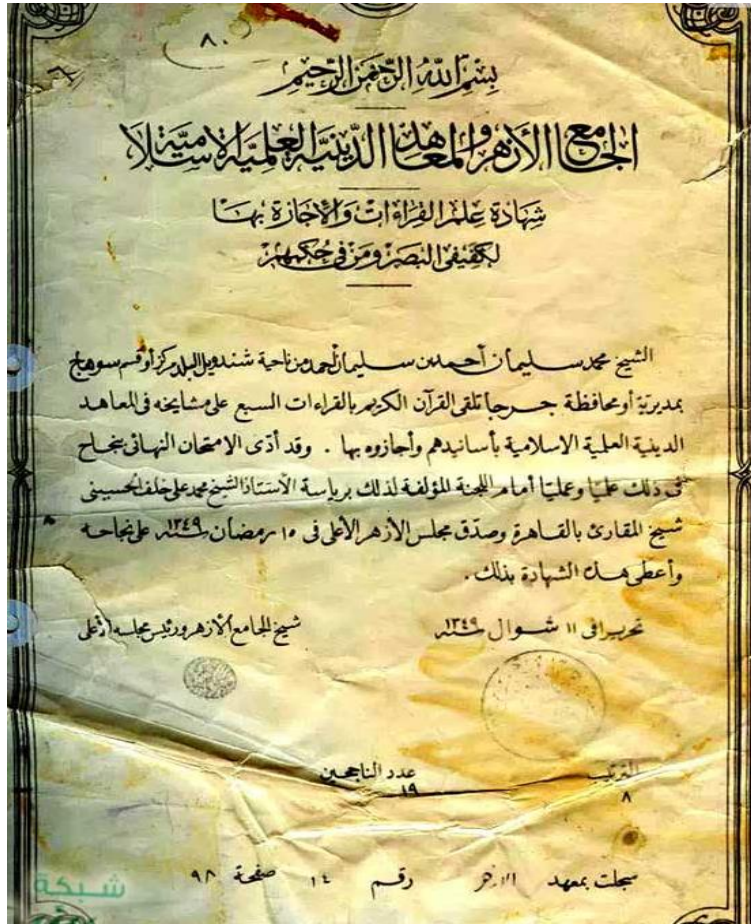 ٨٠
بسم الله الرحمن الرحيم
الجامع الأزهر والمعاهد الدينية العلمية الاسلامية
شهادة علم القراءات والاجازة بها
لكفيفى البصر ومن فى حكمهم
الشيخ محمد سليمان أحمد بن سليمان أحمد من ناحية شندويل البلد مركز أو قسم سوهاج
بمديرية أو محافظة جرجا تلقى القرآن الكريم بالقراءات السبع على مشايخه فى المعاهد
الدينية العلمية الاسلامية بأسانيدهم وأجازوه بها . وقد أدّى الامتحان النهائى بنجاح
فى ذلك علميا وعمليا أمام اللجنة المؤلفة لذلك برياسة الأستاذ الشيخ محمد على خلف الحسينى
شيخ المقارئ بالقاهرة وصدّق مجلس الأزهر الأعلى فى ١٥ رمضان سنة ١٣٤٩ على نجاحه
وأعطى هذه الشهادة بذلك .
تحريرا فى ١١ شوال سنة ١٣٤٩ شيخ الجامع الأزهر ورئيس مجلسه الأعلى
الترتيب عدد الناجحين
٨ ١٩
سجلت بمعهد الازهر رقم ١٤ صفحة ٩٨
شبكة